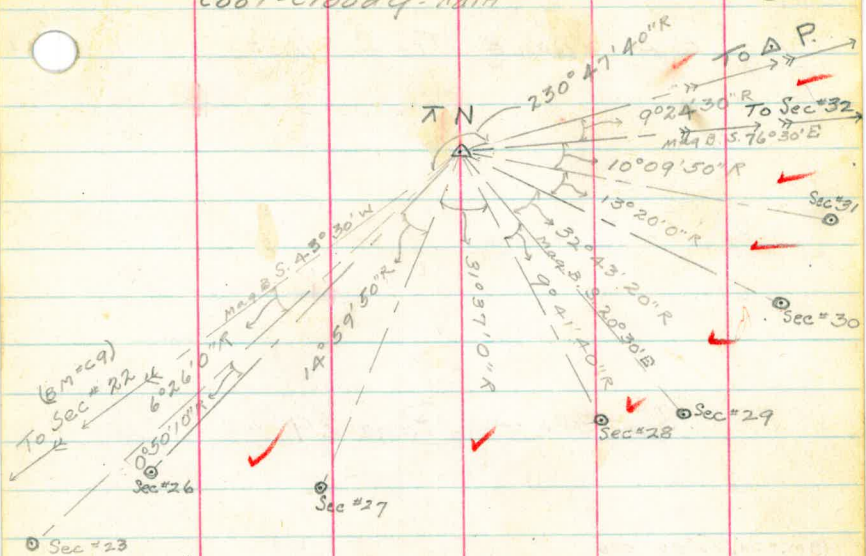 Cool-Cloudy-Rain
230° 47' 40" R
To △ P.
⊼ N
9° 24' 30" R
To Sec #32
Mag B. S. 76° 30' E
10° 09' 50" R
Sec #31
13° 20' 0" R
Sec #30
32° 43' 20" R
Mag. B. S. 20° 30' E
9° 41' 40" R
Sec #29
Sec #28
31° 37' 0" R
14° 59' 50" R
Sec #27
Mag B. S. 43° 30' W
6° 26' 0" R
0° 50' 10" R
(BM = C9)
To Sec #22
Sec #26
Sec #23